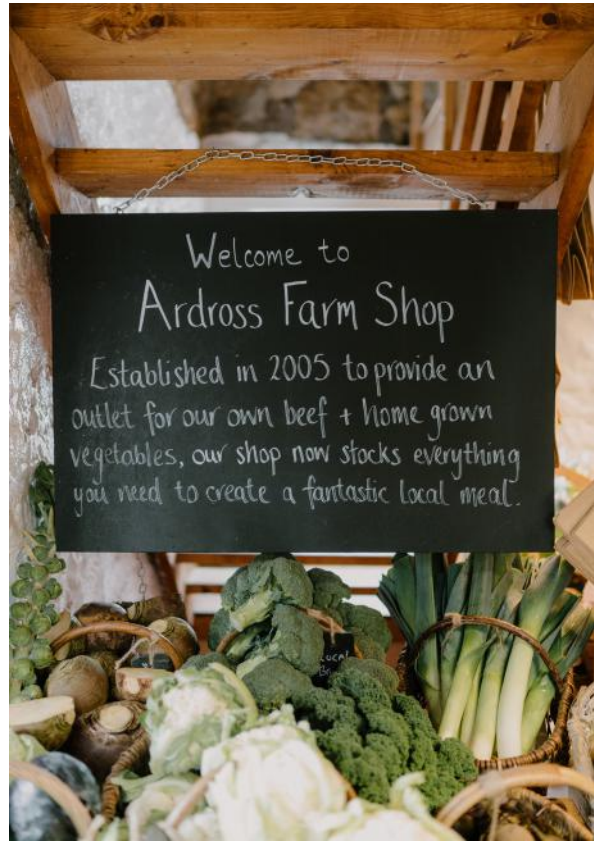 Welcome to
Ardross Farm Shop
Established in 2005 to provide an
outlet for our own beef + home grown
vegetables, our shop now stocks everything
you need to create a fantastic local meal.
Local